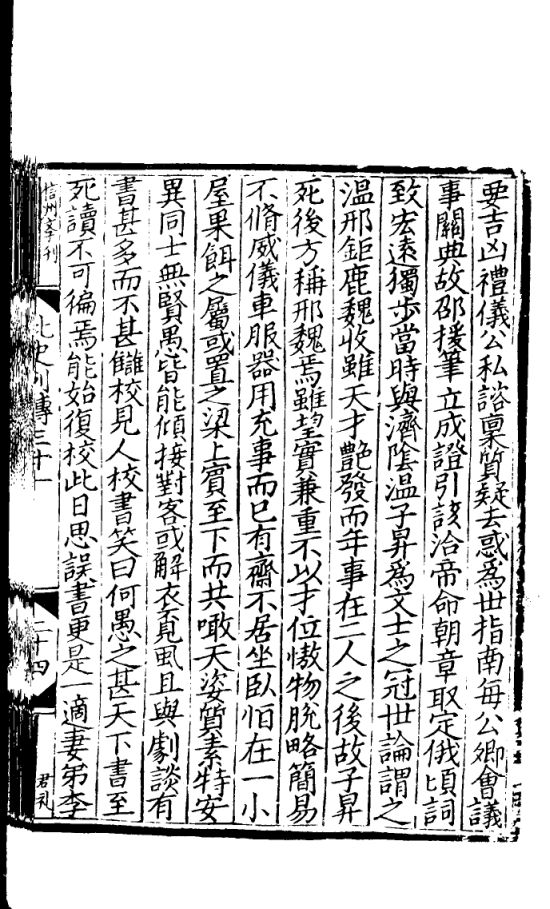 要吉凶禮儀公私諮稟質疑去惑為世指南每公卿會議
事關典故邵援筆立成證引該洽帝命朝章取定俄頃詞
致宏遠獨步當時與濟陰温子昇為文士之冠世論謂之
温邢鉅鹿魏收雖天才艶發而年事在二人之後故子昇
死後方稱邢魏焉雖望實兼重不以才位慠物脫略簡易
不脩威儀車服器用充事而已有齋不居坐卧恒在一小
屋果餌之屬或置之梁上賔至下而共噉天姿質素特安
異同士無賢愚皆能傾接對客或解衣覓虱且與劇談有
書甚多而不甚讎校見人校書笑曰何愚之甚天下書至
死讀不可徧焉能始復校此日思誤書更是一適妻弟李
信州學刊
北史列傳三十一
二十四
君礼